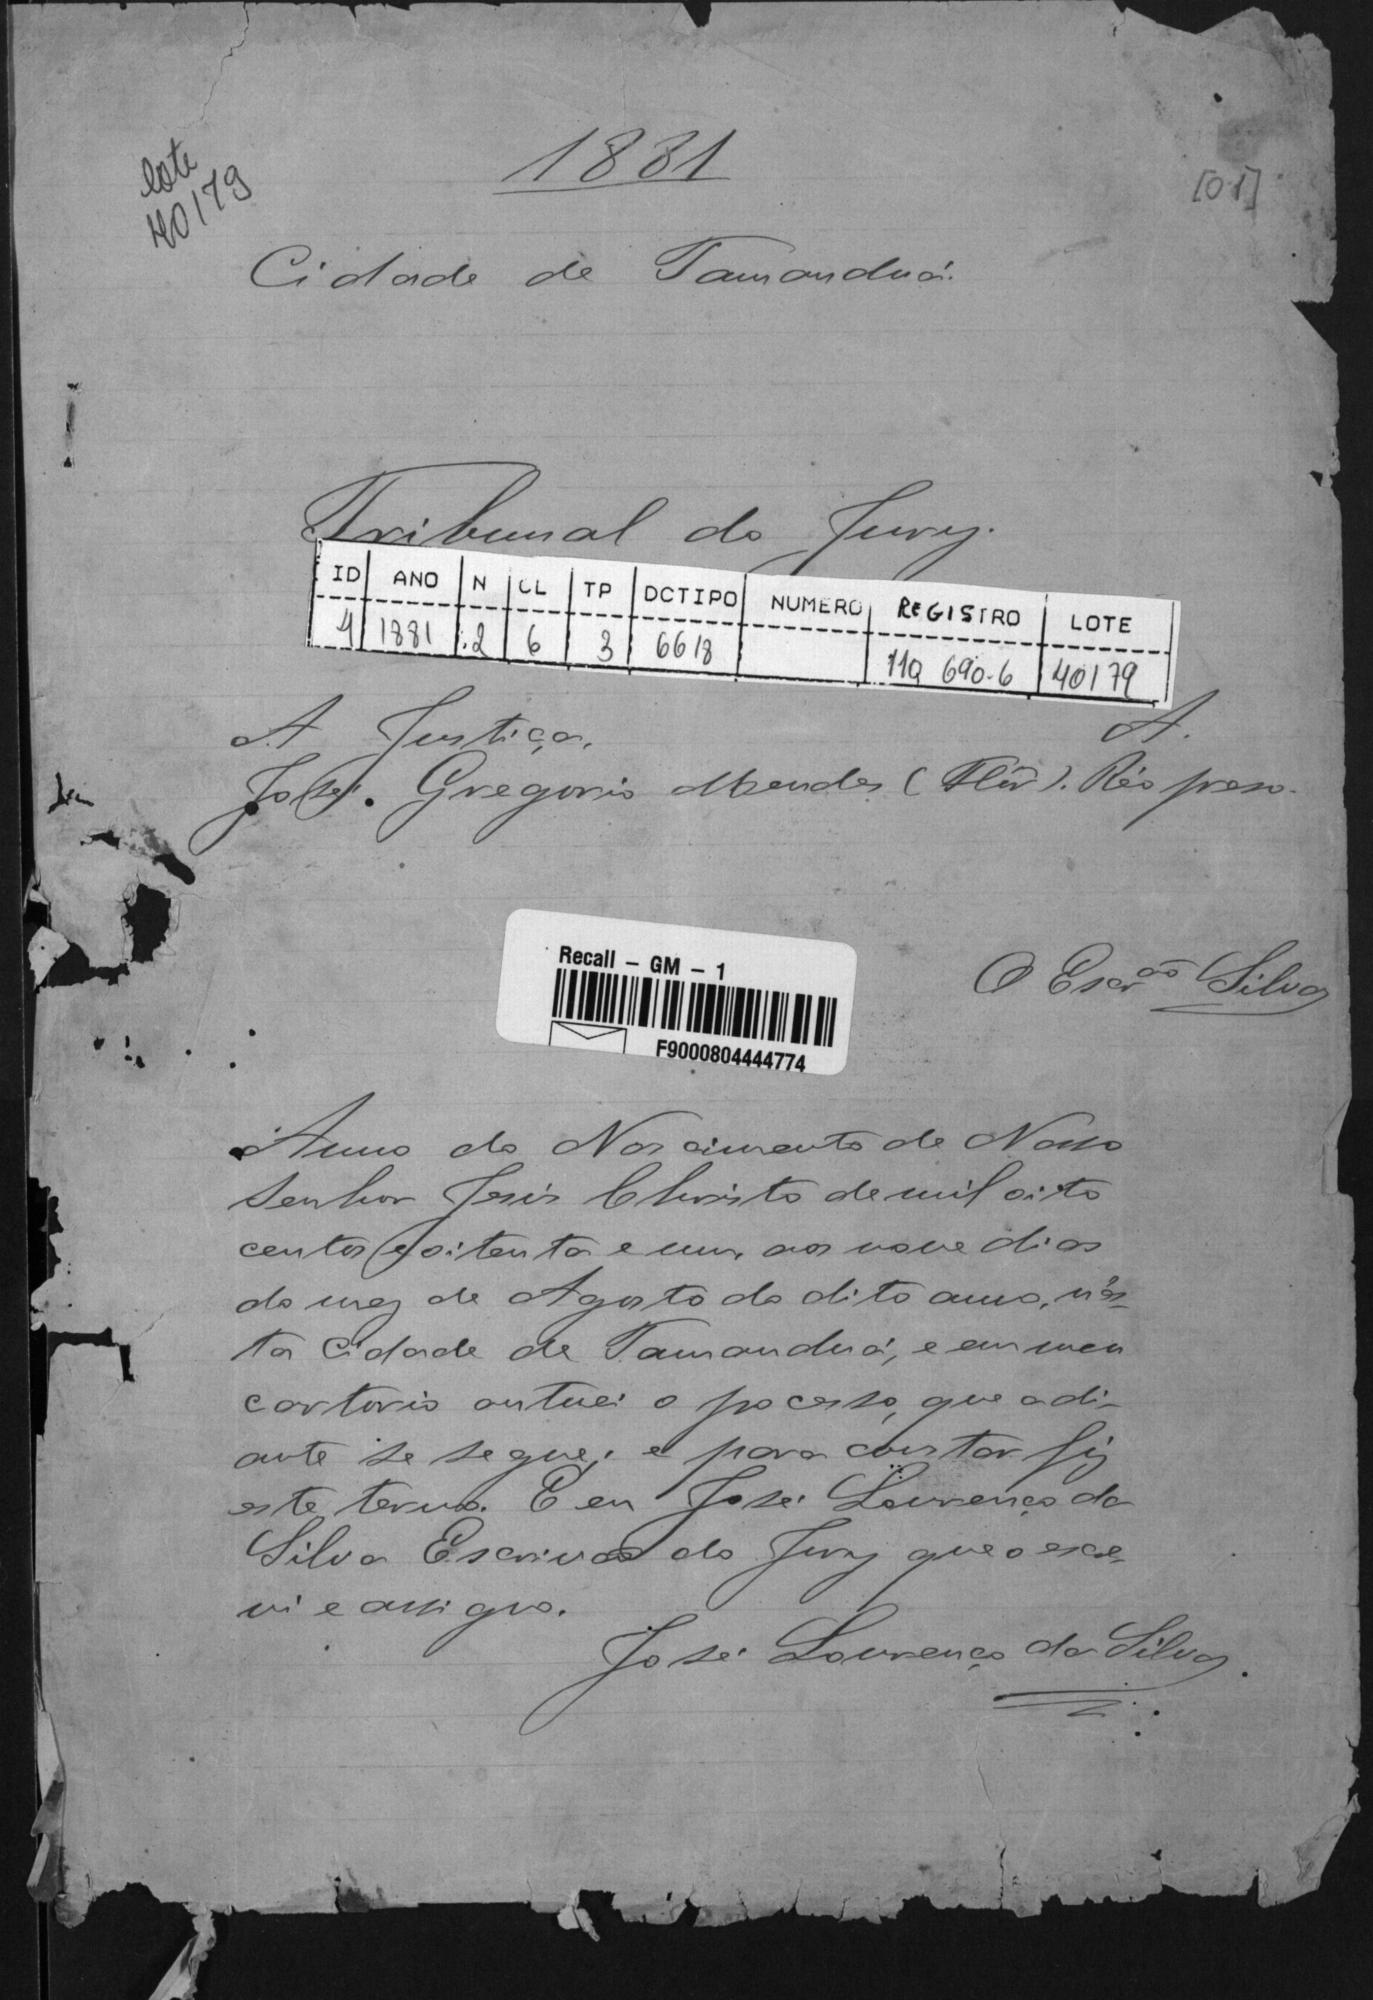 lote
40179
1881
[01]
Cidade de Tamanduá.
Tribunal do Jury.
ID ANO N CL TP DCTIPO NUMERO REGISTRO LOTE
4 1881 .2 6 3 6618 119 690-6 40179
A Justiça. A.
José Gregorio Mendes ( ). Réo preso.
O Escr.ão Silva
Recall - GM - 1
F9000804444774
Anno do Nascimento de Nosso
Senhor Jesús Christo de mil oito
centos e oitenta e um, aos nove dias
do mez de Agosto do dito anno, n'es-
ta Cidade de Tamanduá, e em meu
cartorio autuei o pocesso, que adi-
ante se segue; e para constar fiz
este termo. E eu José Lourenço da
Silva Escrivão do Jury que o escre-
vi e assigno.
José Lourenço da Silva.